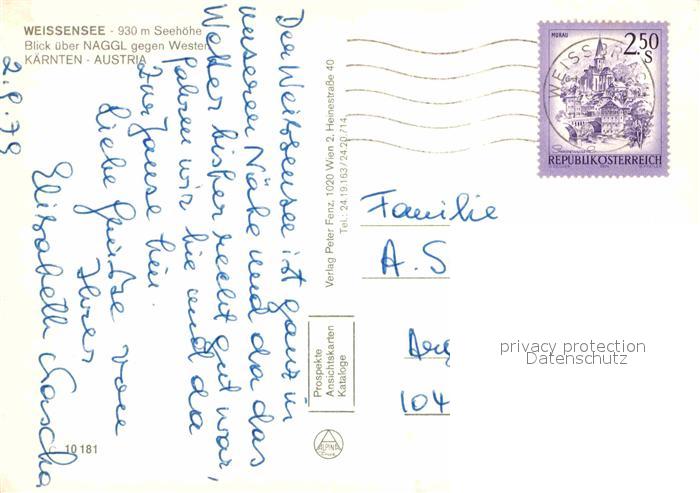 WEISSENSEE - 930 m Seehöhe
Blick über NAGGL gegen Westen
KÄRNTEN - AUSTRIA
2.8.79
Der Weissensee ist ganz in
unserer Nähe und da das
Wetter bisher recht gut war,
fahren wir hie und da
zur Jause hin.
Liebe Grüsse von
Ihrer
Elisabeth
10 181
Verlag Peter Fenz, 1020 Wien 2, Heinestraße 40
Tel.: 24 19 163 / 24 20 714
Prospekte
Ansichtskarten
Kataloge
ALPINA
MURAU
2.50
S
WEISSBR
REPUBLIK ÖSTERREICH
Familie
A. S
104
privacy protection
Datenschutz